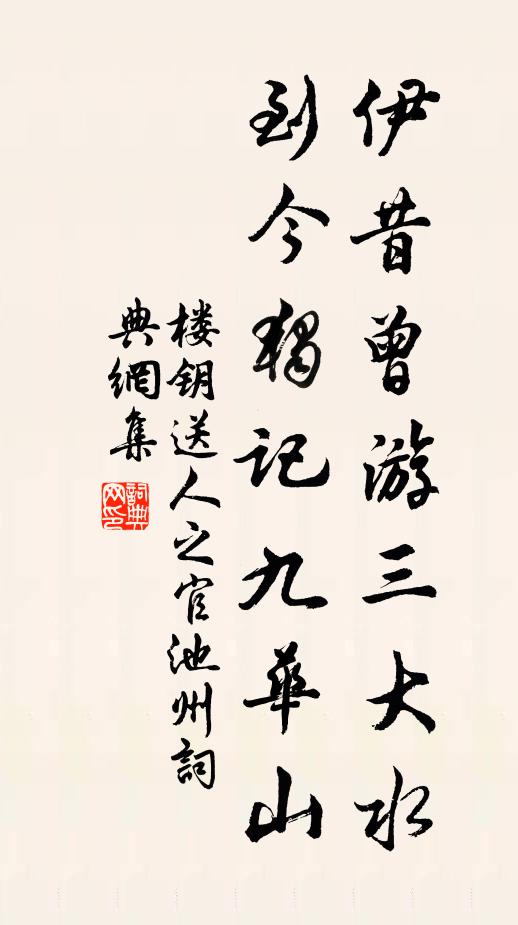 伊昔曾游三大水
到今独记九華山
楼钥送人之官池州詞
典網集
詞典
网印